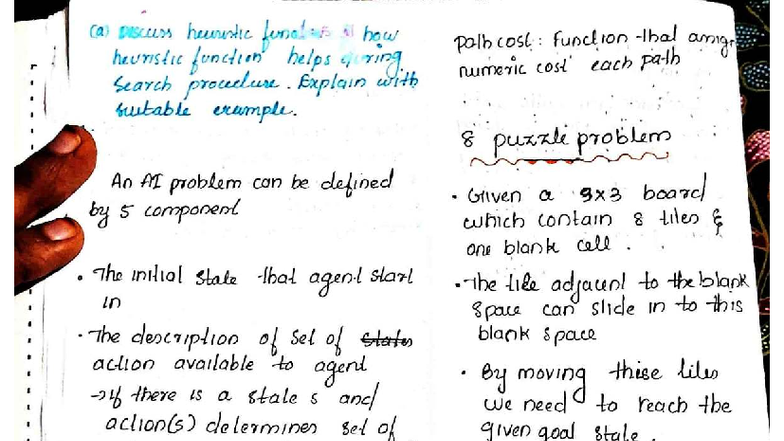 (a) Discuss heuristic how
heuristic function helps during
search procedure. Explain with
suitable example.
An AI problem can be defined
by 5 component
• The initial state that agent start
in
• The description of set of states
action available to agent
→ if there is a state s and
action(s) determines set of
path cost: function that
numeric cost each path
8 puzzle problem
• Given a 3x3 board
which contain 8 tiles &
one blank cell.
• The tile adjacent to the blank
space can slide in to this
blank space
• By moving these tiles
we need to reach the
given goal state.